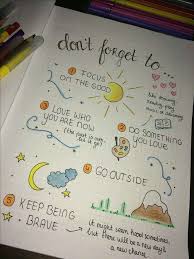 don't forget to...
1 FOCUS
ON THE GOOD
3 LOVE WHO
YOU ARE NOW
(the past is over,
let it go!)
2 DO SOMETHING
YOU LOVE
4 GO OUTSIDE
5 KEEP BEING
BRAVE
(it might seem hard sometimes,
but there will be a new day &
a new chance)